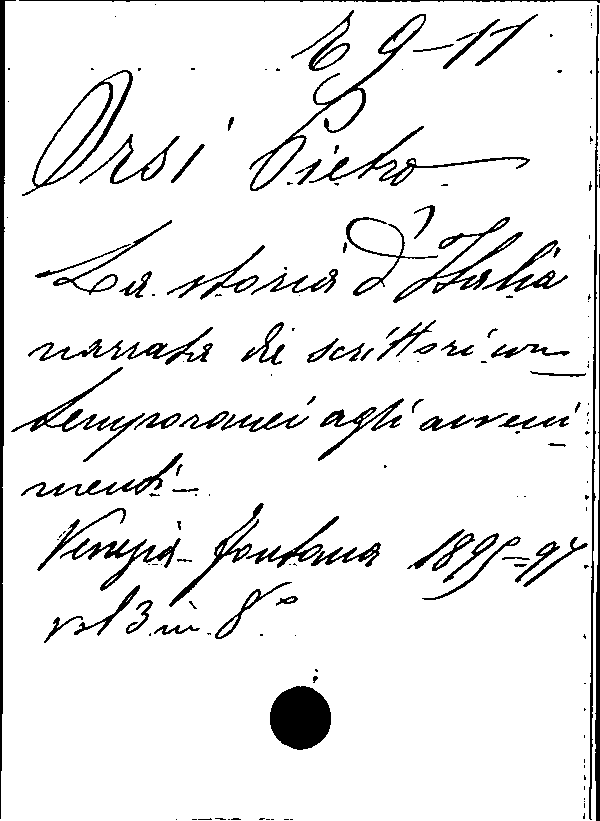 E 9-11
Orsi Pietro
La storia d'Italia
narrata da scrittori con
temporanei agli avveni
menti-
Venezia - Fontana 1895=97
vol 3 in 8°